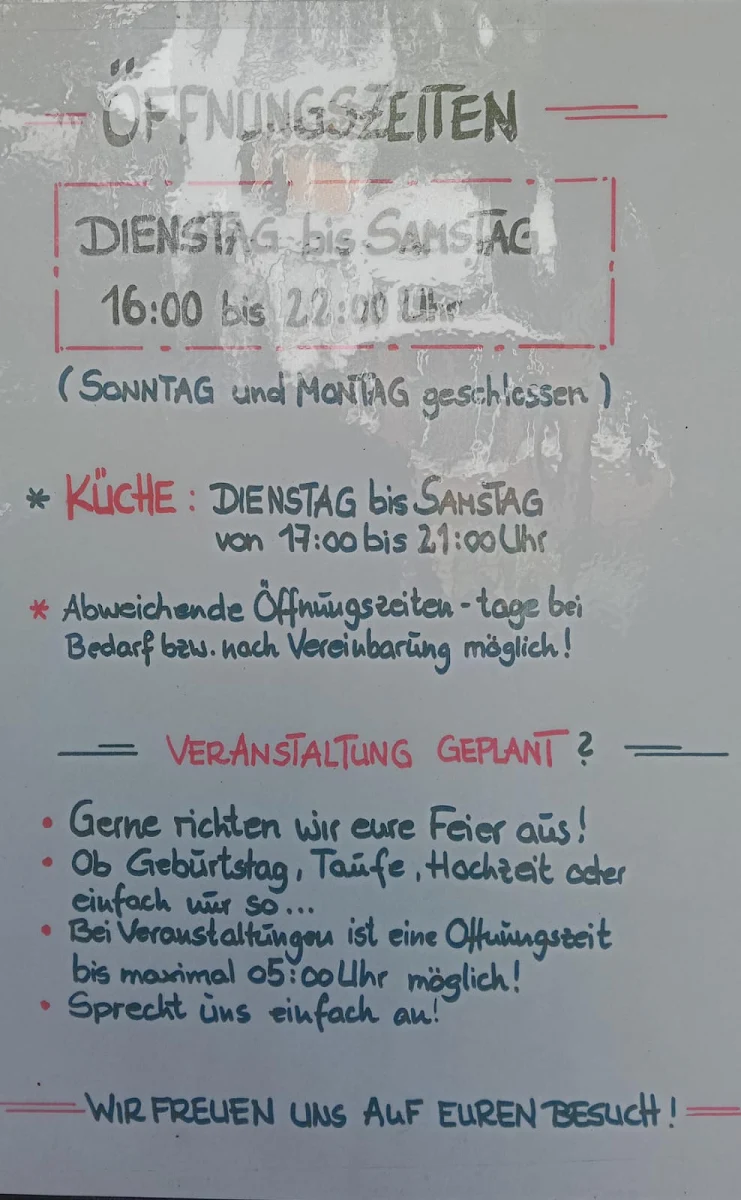 ÖFFNUNGSZEITEN
DIENSTAG bis SAMSTAG
16:00 bis 22:00 Uhr
(SONNTAG und MONTAG geschlossen)
* KÜCHE: DIENSTAG bis SAMSTAG
von 17:00 bis 21:00 Uhr
* Abweichende Öffnungszeiten - tage bei
Bedarf bzw. nach Vereinbarung möglich!
VERANSTALTUNG GEPLANT?
• Gerne richten wir eure Feier aus!
• Ob Geburtstag, Taufe, Hochzeit oder
einfach nur so...
• Bei Veranstaltungen ist eine Öffnungszeit
bis maximal 05:00 Uhr möglich!
• Sprecht uns einfach an!
WIR FREUEN UNS AUF EUREN BESUCH!